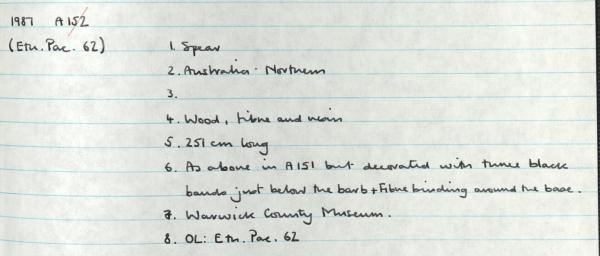 1987 A152
(Etn. Pac. 62) 1. Spear
2. Australia - Northern
3.
4. Wood, fibre and resin
5. 251 cm long
6. As above in A151 but decorated with three black
bands just below the barb + Fibre binding around the base.
7. Warwick County Museum.
8. OL: Etn. Pac. 62